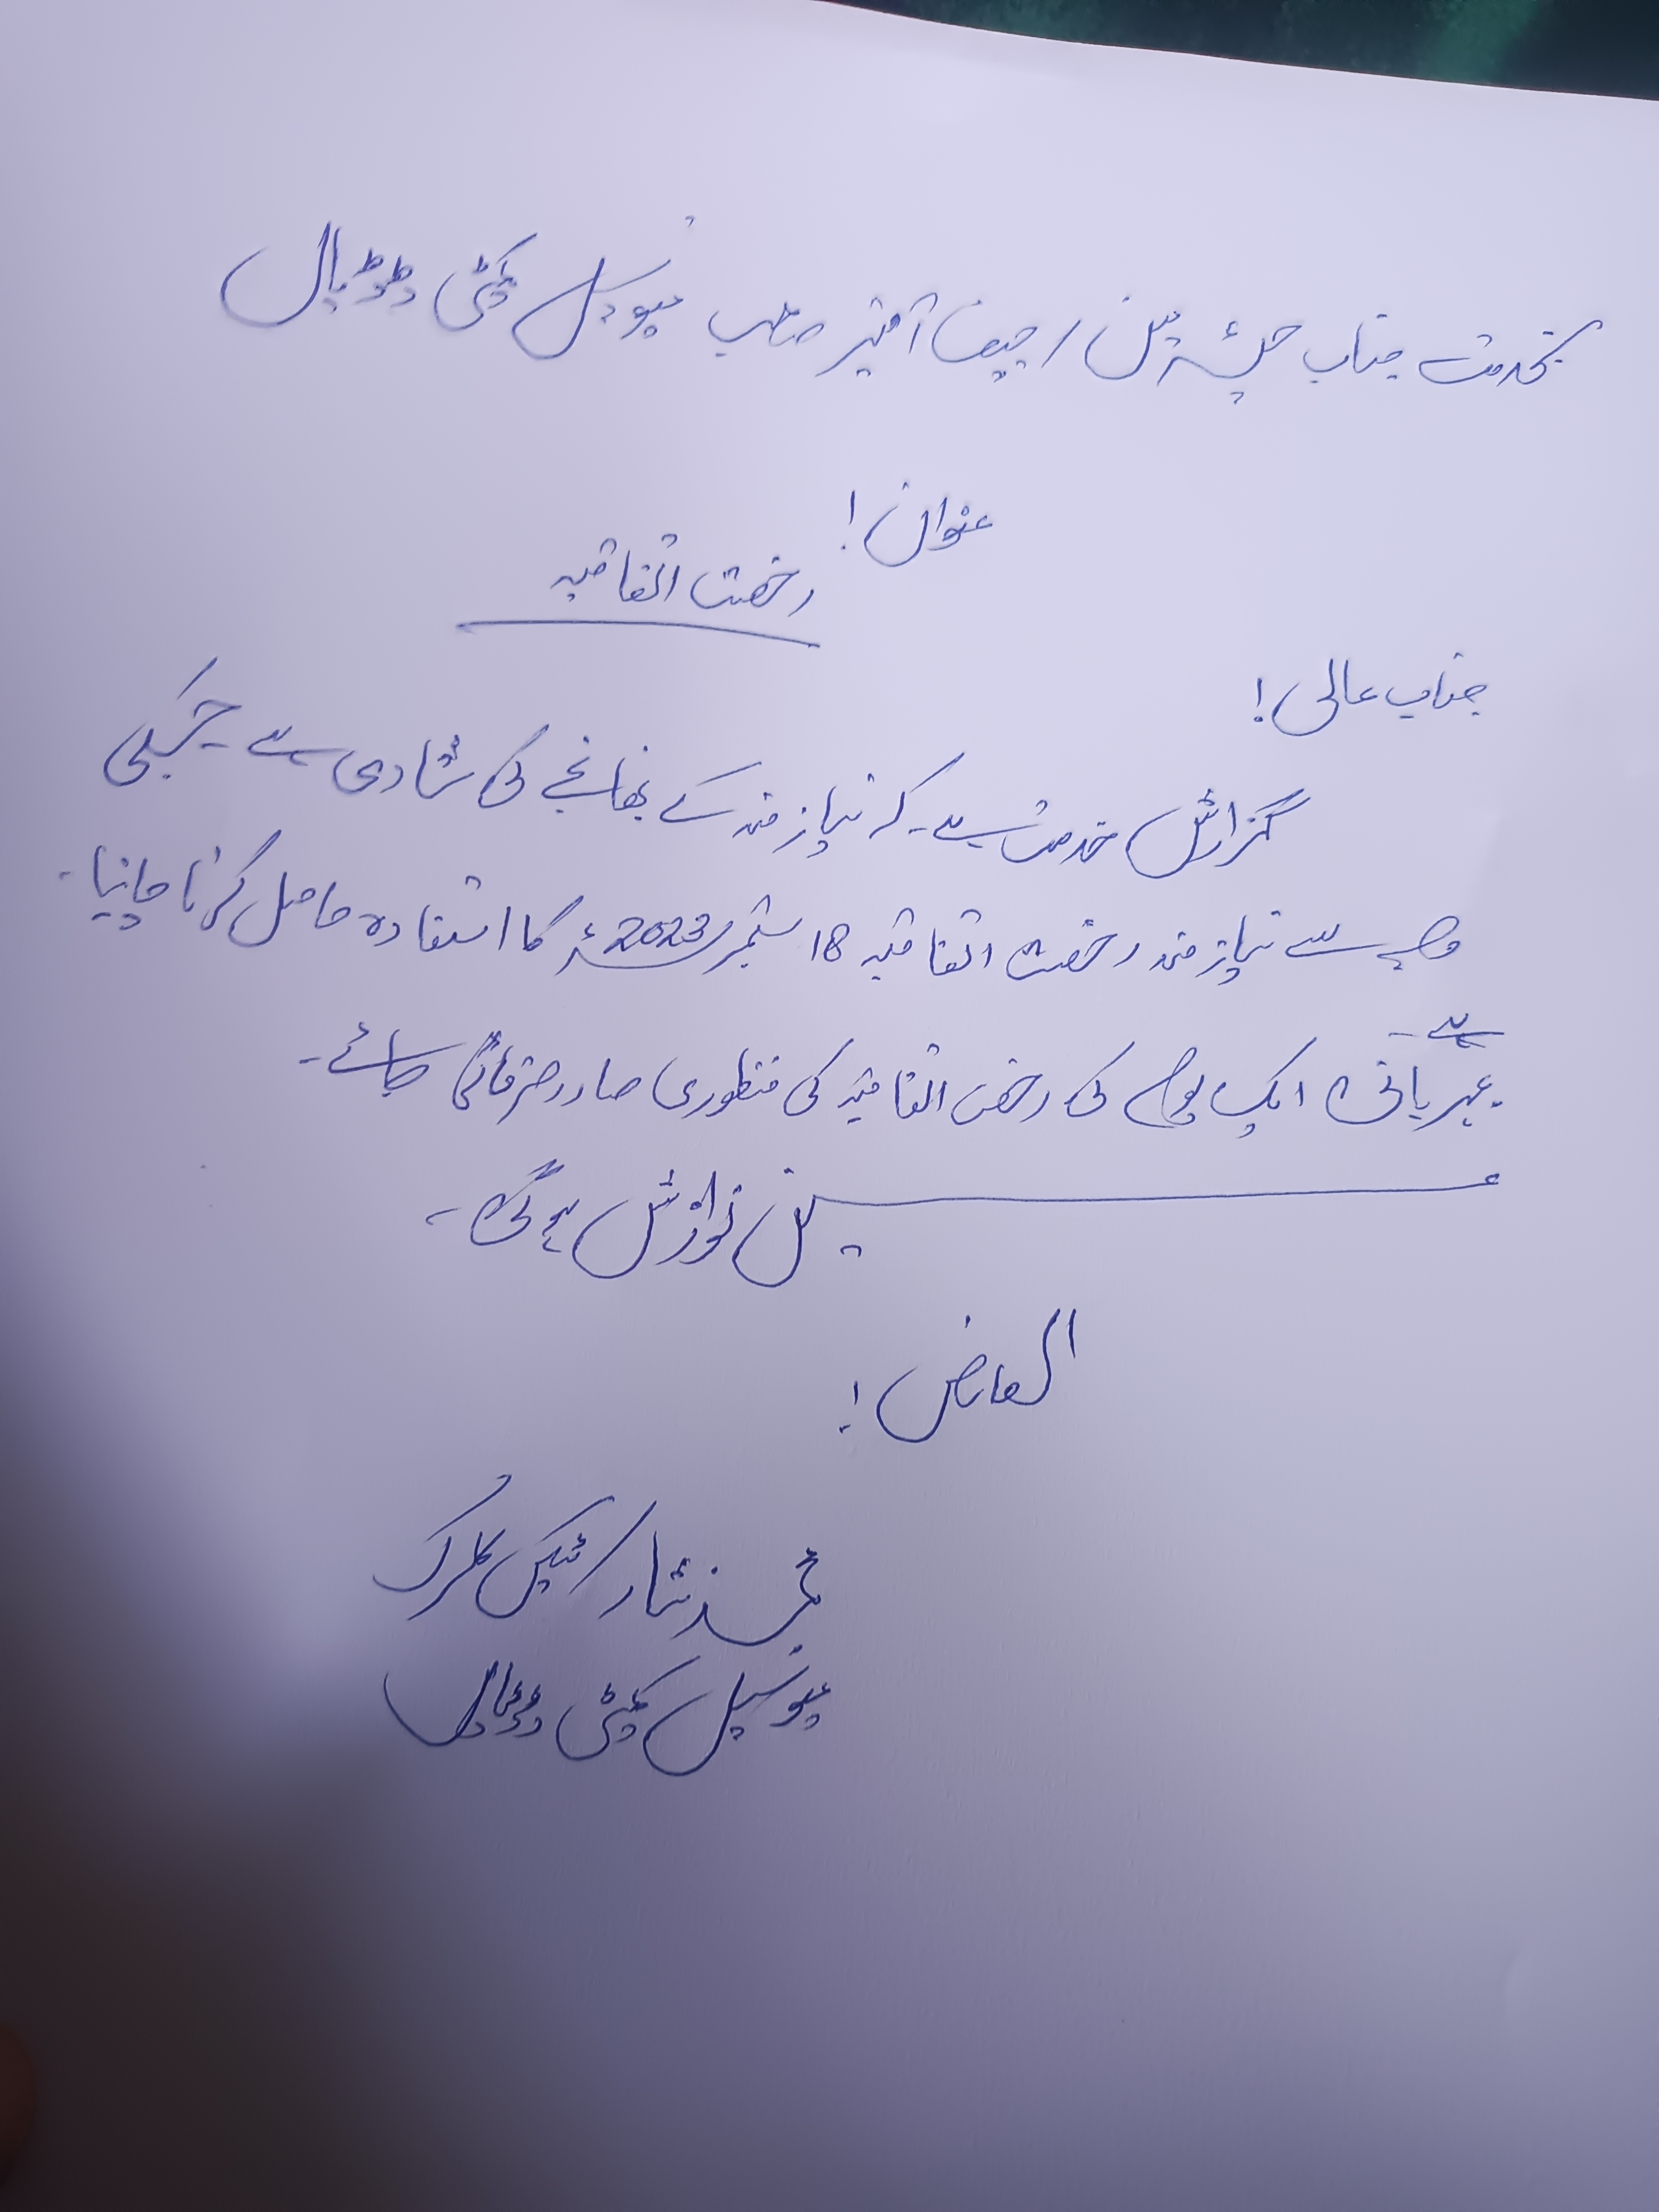 بخدمت جناب چیئرمین / چیف آفیسر صاحب میونسپل کمیٹی ڈڈیال
عنوان!
رخصت اتفاقیہ
جناب عالی!
گزارش خدمت ہے۔ کہ نیاز مند کے بھانجے کی شادی ہے۔ جسکی
وجہ سے نیاز مند رخصت اتفاقیہ 18 ستمبر 2023ء کا استفادہ حاصل کرنا چاہتا
ہے۔
مہربانی ایک یوم کی رخصت اتفاقیہ کی منظوری صادر فرمائی جائے۔
عین نوازش ہو گی۔
العارض!
محمد نثار / ٹیکس کلرک
میونسپل کمیٹی ڈڈیال